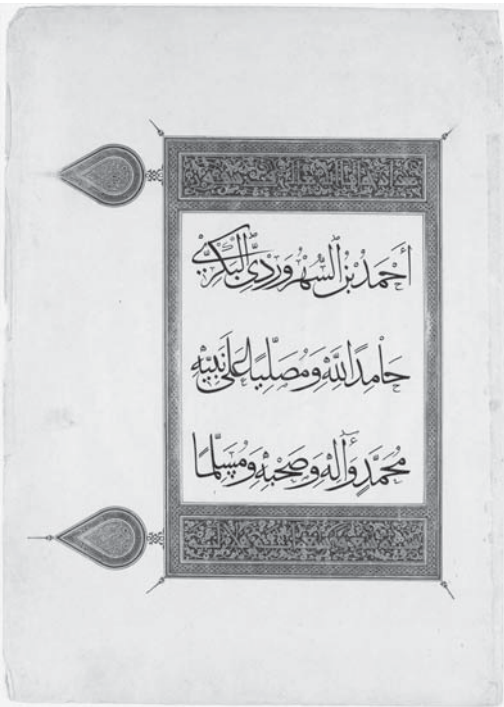 أَحْمَدُ بْنُ السُّهْرُوَرْدِيِّ الْبَكْرِيِّ
حَامِدًا لِلَّهِ وَمُصَلِّيًا عَلَى نَبِيِّهِ
مُحَمَّدٍ وَآلِهِ وَصَحْبِهِ وَمُسَلِّمًا